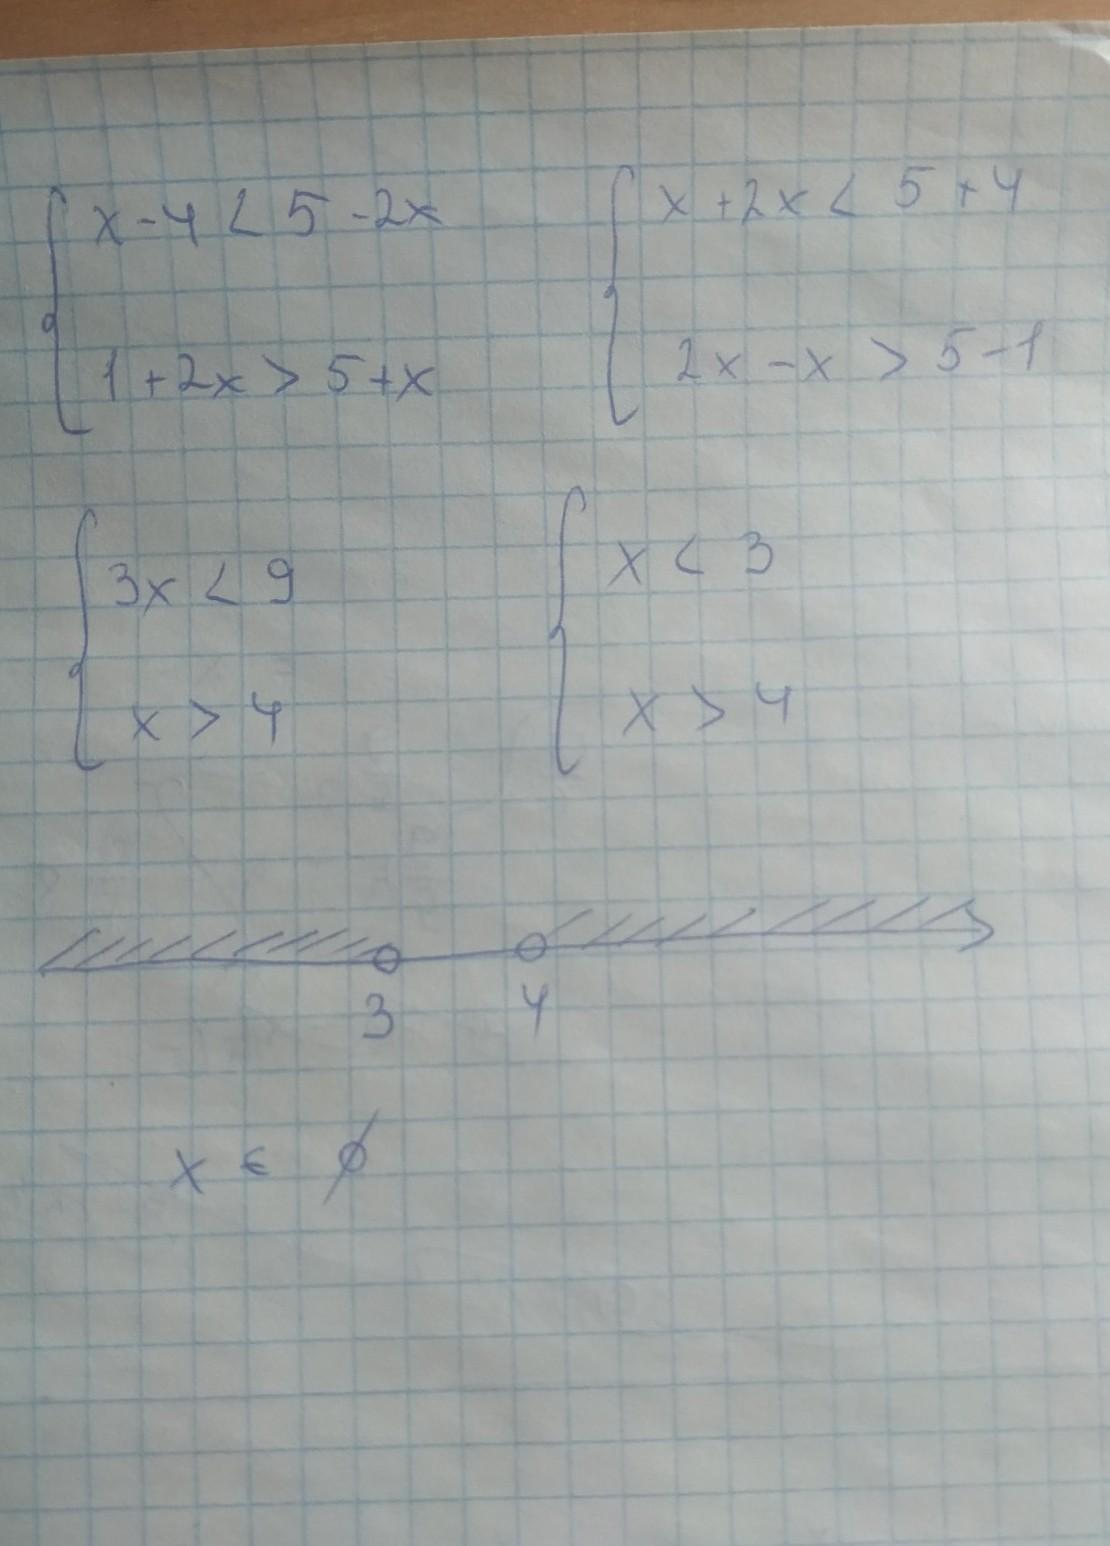 x - 4 < 5 - 2x
1 + 2x > 5 + x
x + 2x < 5 + 4
2x - x > 5 - 1
3x < 9
x > 4
x < 3
x > 4
3 4
x ∈ ∅